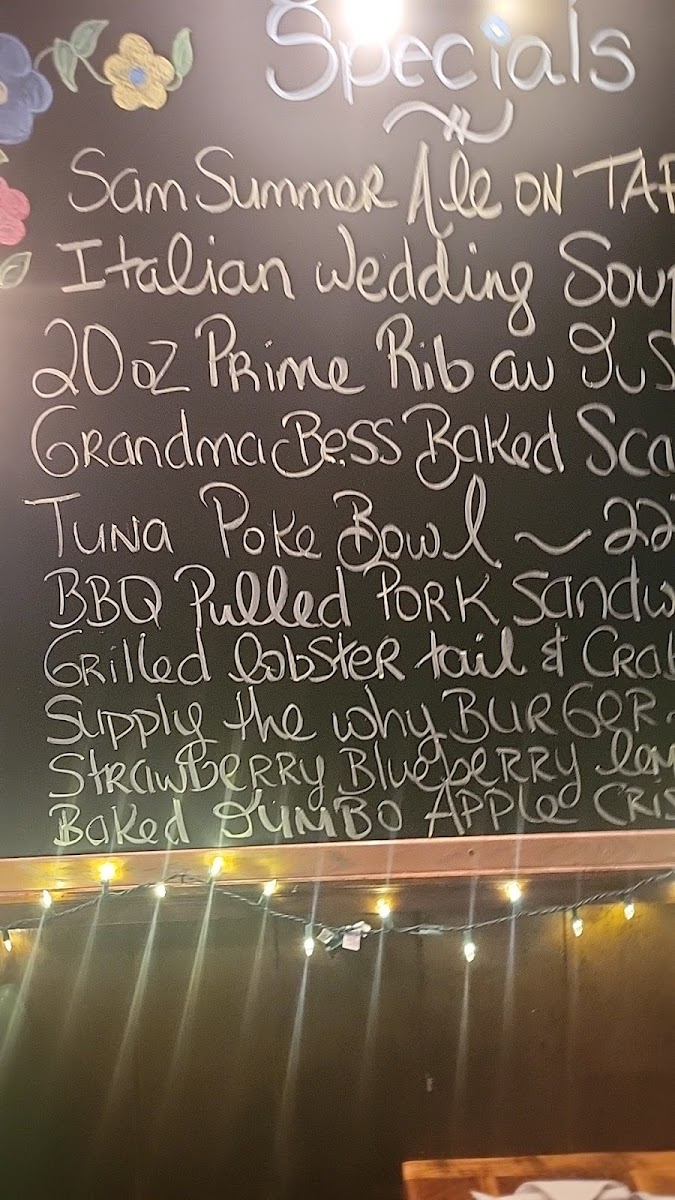 Specials
Sam Summer Ale ON TAP
Italian Wedding Soup
20oz Prime Rib au Jus
Grandma Bess Baked Sca
Tuna Poke Bowl ~ 22
BBQ Pulled Pork Sandw
Grilled lobster tail & Crab
Supply the why BURGER
Strawberry Blueberry lem
Baked JUMBO Apple CRIS